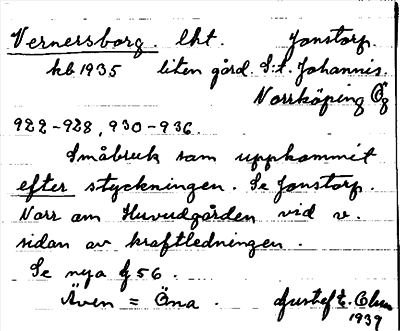 Vernersborg. lht. Jonstorp.
kb 1935 liten gård. S:t. Johannis.
Norrköping Ög
922-928, 930-936.
Småbruk som uppkommit
efter styckningen. Se Jonstorp.
Norr om Huvudgården vid v.
sidan av kraftledningen.
Se nya § 56.
Även = Öna. Gustef E. Olsson
1939